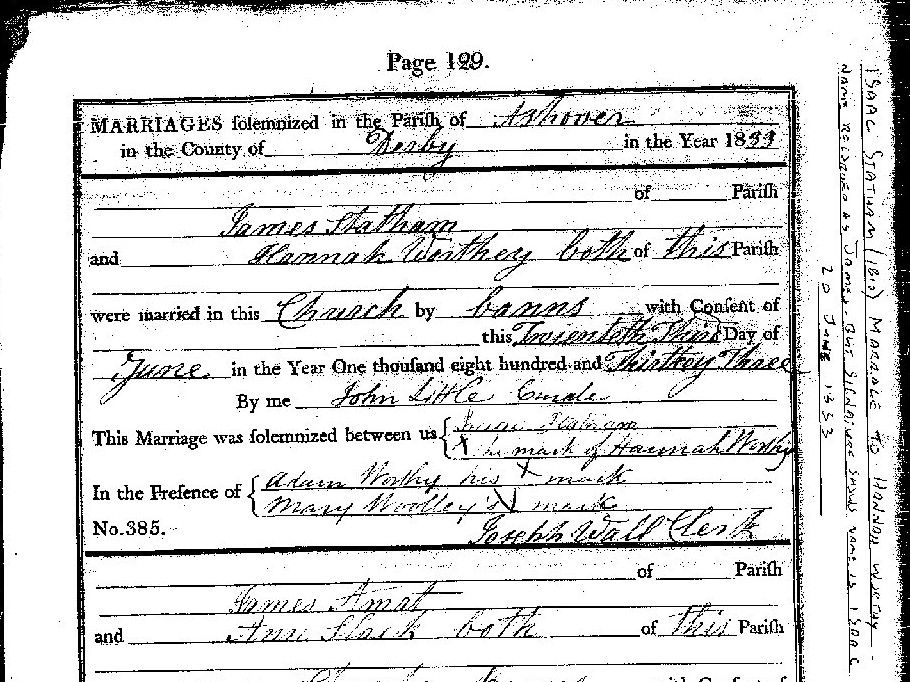 Page 129.
MARRIAGES solemnized in the Parish of Ashover
in the County of Derby in the Year 1833
of Parish
James Statham
and Hannah Worthey both of this Parish
were married in this Church by banns with Consent of
this Twienteth Third Day of
June in the Year One thousand eight hundred and Thirtey Three
By me John Little Curate
This Marriage was solemnized between us { Isaac Statham
X the mark of Hannah Worthy
In the Presence of { Adam Worthy his X mark
Mary Woolley's X mark
No. 385. Joseph Wall Clerk
of Parish
James Amat
and Ann Slack both of this Parish
with Consent of
ISAAC STATHAM (1810) MARRIAGE TO HANNAH WORTHY -
NAME RECORDED AS JAMES - BUT SIGNATURE SHOWS NAME IS ISAAC
20 JUNE 1833